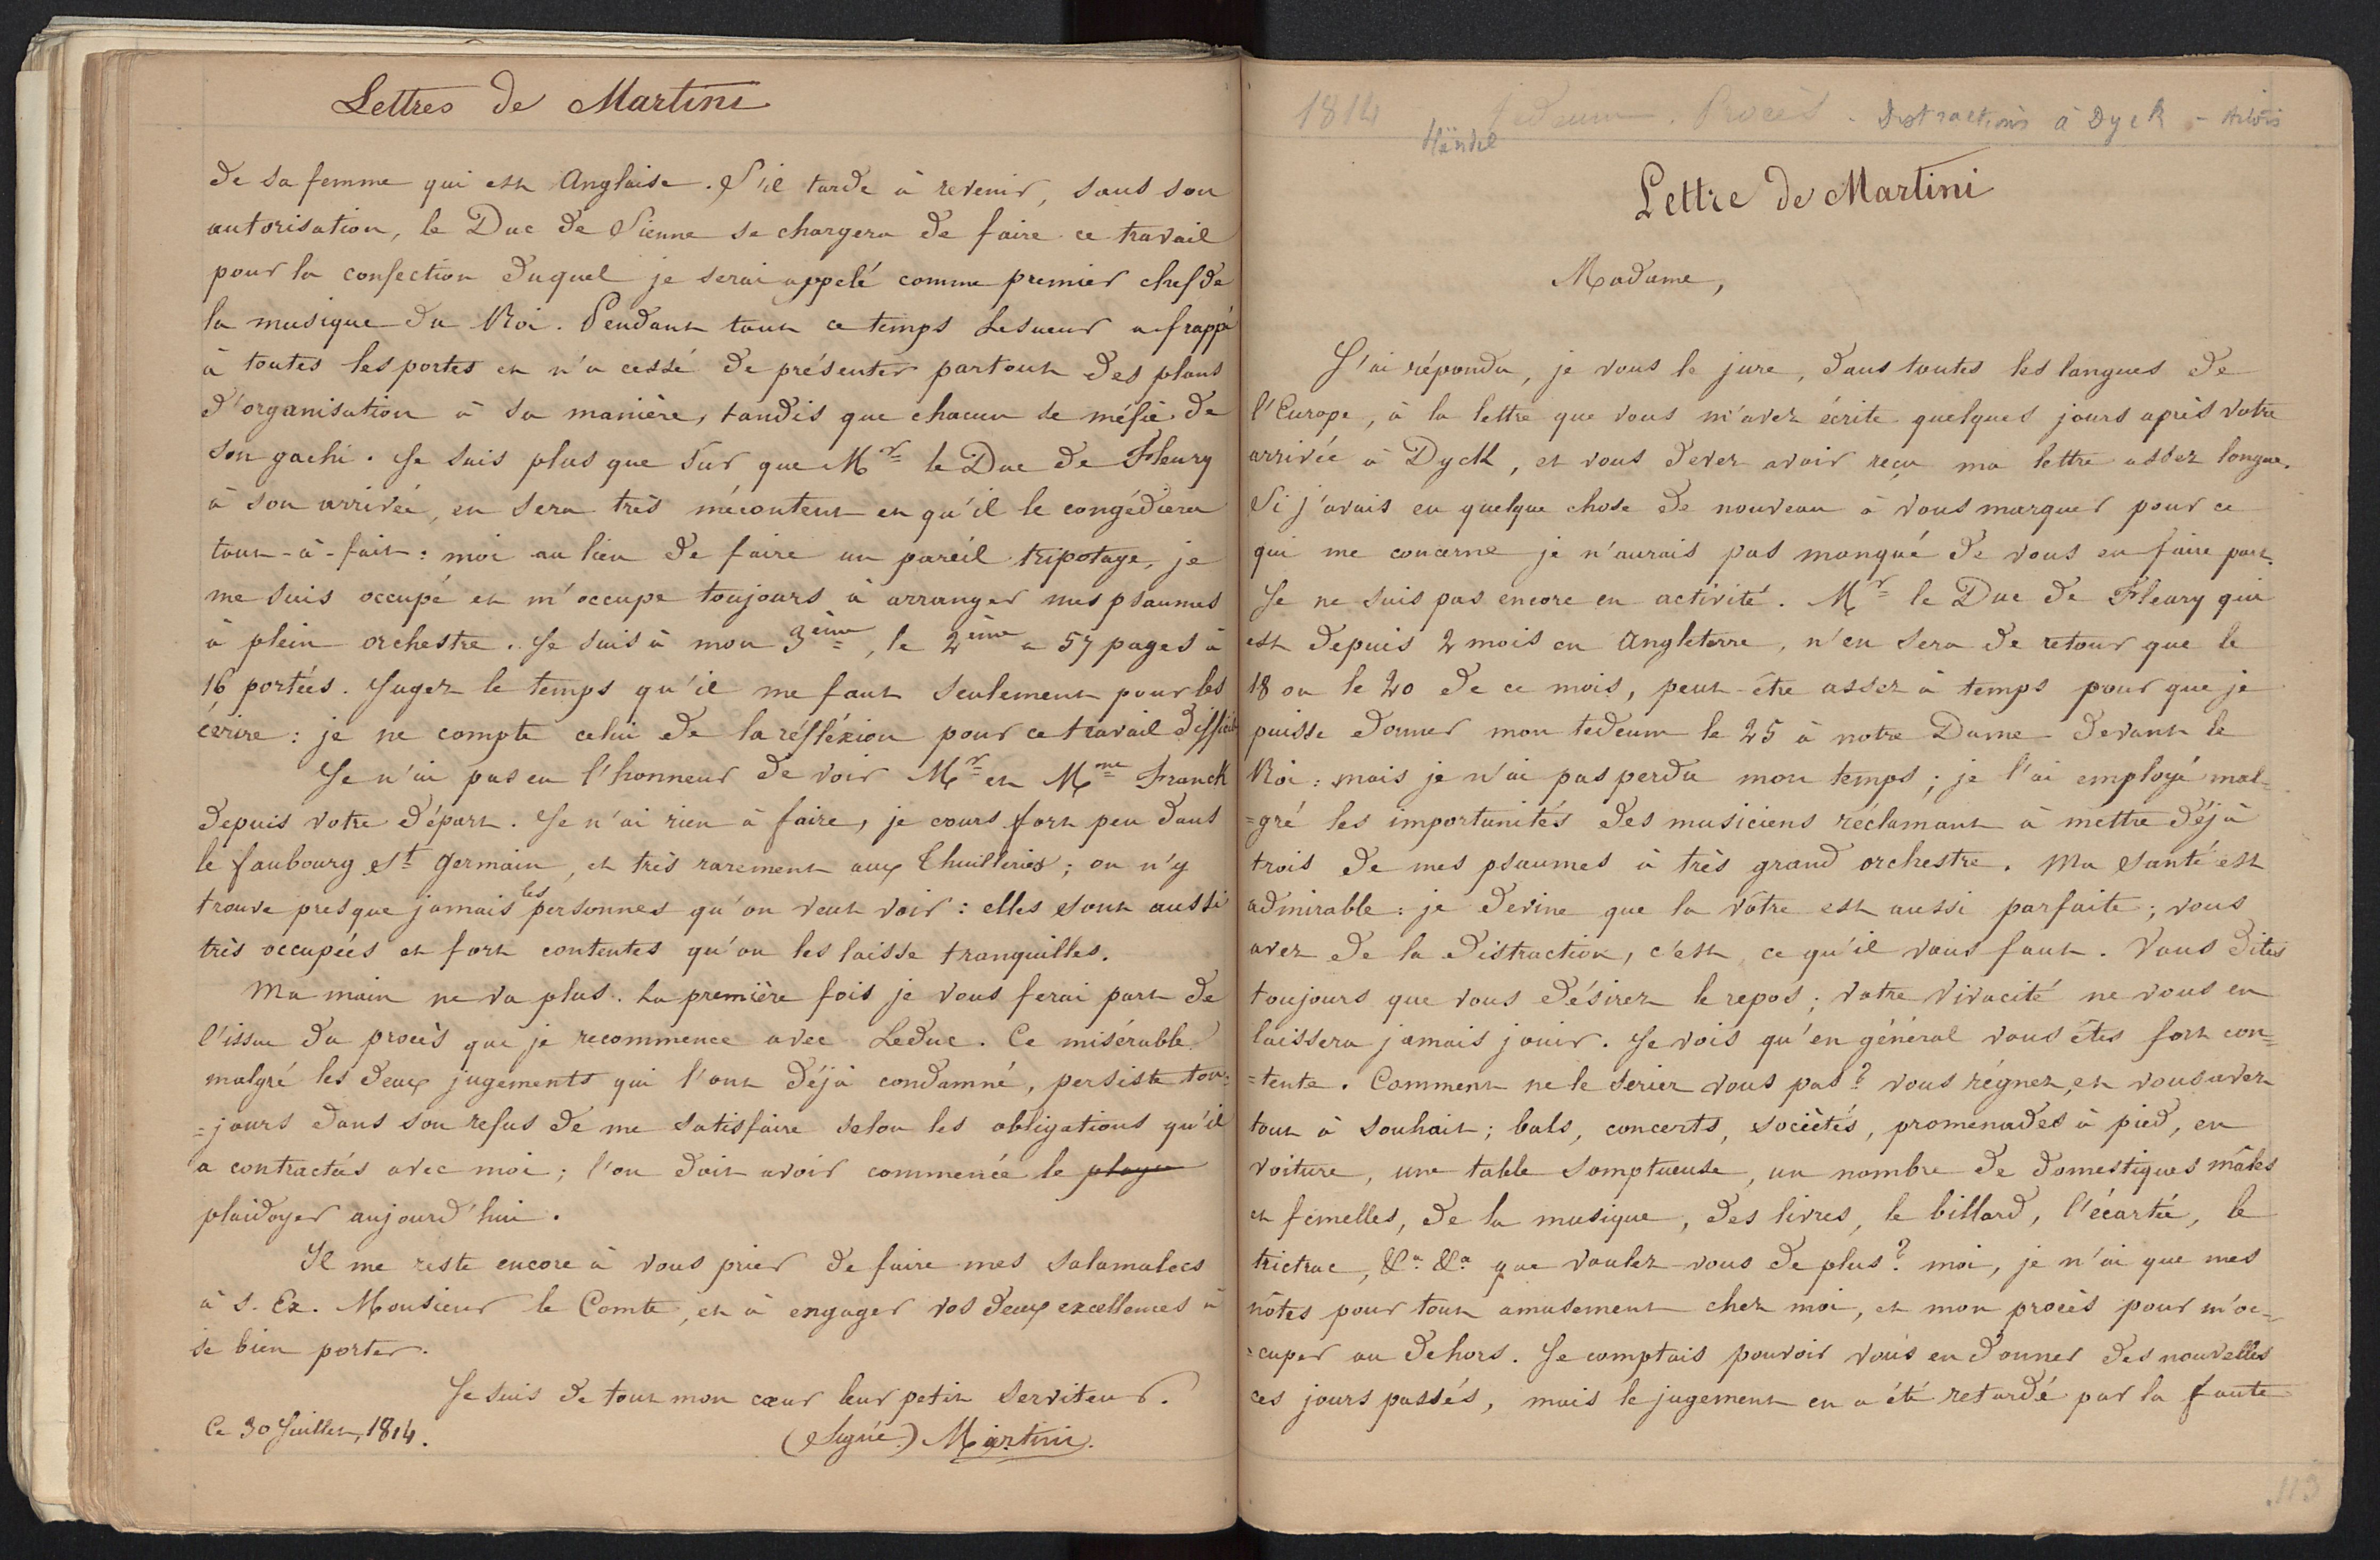 Lettres de Martini
de sa femme qui est Anglaise. S'il tarde à revenir, sauf son
autorisation, le Duc de Sienne se chargera de faire ce travail
pour la confection duquel je serai appelé comme premier chef de
la musique du Roi. Pendant tout ce temps Lesueur a frappé
à toutes les portes et n'a cessé de présenter partout des plans
d'organisation à sa manière, tandis que chacun se méfie de
son gachi. Je suis plus que sur que Mr le Duc de Fleury
à son arrivée, en sera très mécontent et qu'il le congédiera
tout-à-fait: moi au lieu de faire un pareil tripotage, je
me suis occupé et m'occupe toujours à arranger mes psaumes
à plein orchestre. Je suis à mon 3ème, le 2ème a 57 pages à
16 portées. Jugez le temps qu'il me faut seulement pour les
écrire: je ne compte celui de la réfléxion pour ce travail difficile
Je n'ai pas eu l'honneur de voir Mr et Mme Franck
depuis votre départ. Je n'ai rien à faire, je cours fort peu dans
le faubourg St germain, et très rarement aux Thuilleries; on n'y
trouve presque jamais les personnes qu'on veut voir: elles sont aussi
très occupées et fort contentes qu'on les laisse tranquilles.
Ma main ne va plus. La première fois je vous ferai part de
l'issue du procès que je recommence avec Leduc. Ce misérable
malgré les deux jugements qui l'ont déjà condamné, persiste tou-
=jours dans son refus de me satisfaire selon les obligations qu'il
a contractés avec moi; l'on doit avoir commencée le
plaidoyer aujourd'hui.
Il me reste encore à vous prier de faire mes salamalecs
à S. Ex. Monsieur le Comte, et à engager vos deux excellences à
se bien porter.
Je suis de tout mon cœur leur petit serviteur.
Ce 30 Juillet, 1814.
(Signé) Martini.
1814 Tedeum. Procès. Distractions à Dyck -
Händel
Lettre de Martini
Madame,
J'ai répondu, je vous le jure, dans toutes les langues de
l'Europe, à la lettre que vous m'avez écrite quelques jours après votre
arrivée à Dyck, et vous devez avoir reçu ma lettre assez longue.
Si j'avais eu quelque chose de nouveau à vous marquer pour ce
qui me concerne je n'aurais pas manqué de vous en faire part.
Je ne suis pas encore en activité. Mr le Duc de Fleury qui
est depuis 2 mois en Angleterre, n'en sera de retour que le
18 ou le 20 de ce mois, peut-être assez à temps pour que je
puisse donner mon tedeum le 25 à notre Dame devant le
Roi: mais je n'ai pas perdu mon temps; je l'ai employé mal-
=gré les importunités des musiciens réclamant à mettre déjà
trois de mes psaumes à très grand orchestre. Ma santé est
admirable: je devine que la vôtre est aussi parfaite; vous
avez de la distraction, c'est ce qu'il vous faut. Vous dites
toujours que vous désirez le repos; votre vivacité ne vous en
laissera jamais jouir. Je vois qu'en général vous êtes fort con=
=tente. Comment ne le seriez vous pas? vous régnez, et vous avez
tout à souhait; bals, concerts, sociétés, promenades à pied, en
voiture, une table somptueuse, un nombre de domestiques mâles
et femelles, de la musique, des livres, le billard, l'écartée, le
trictrac, &a &a que voulez-vous de plus? moi, je n'ai que mes
nôtes pour tout amusement chez moi, et mon procès pour m'oc-
=cuper au dehors. Je comptais pouvoir vous en donner des nouvelles
ces jours passés, mais le jugement en a été retardé par la faute
113